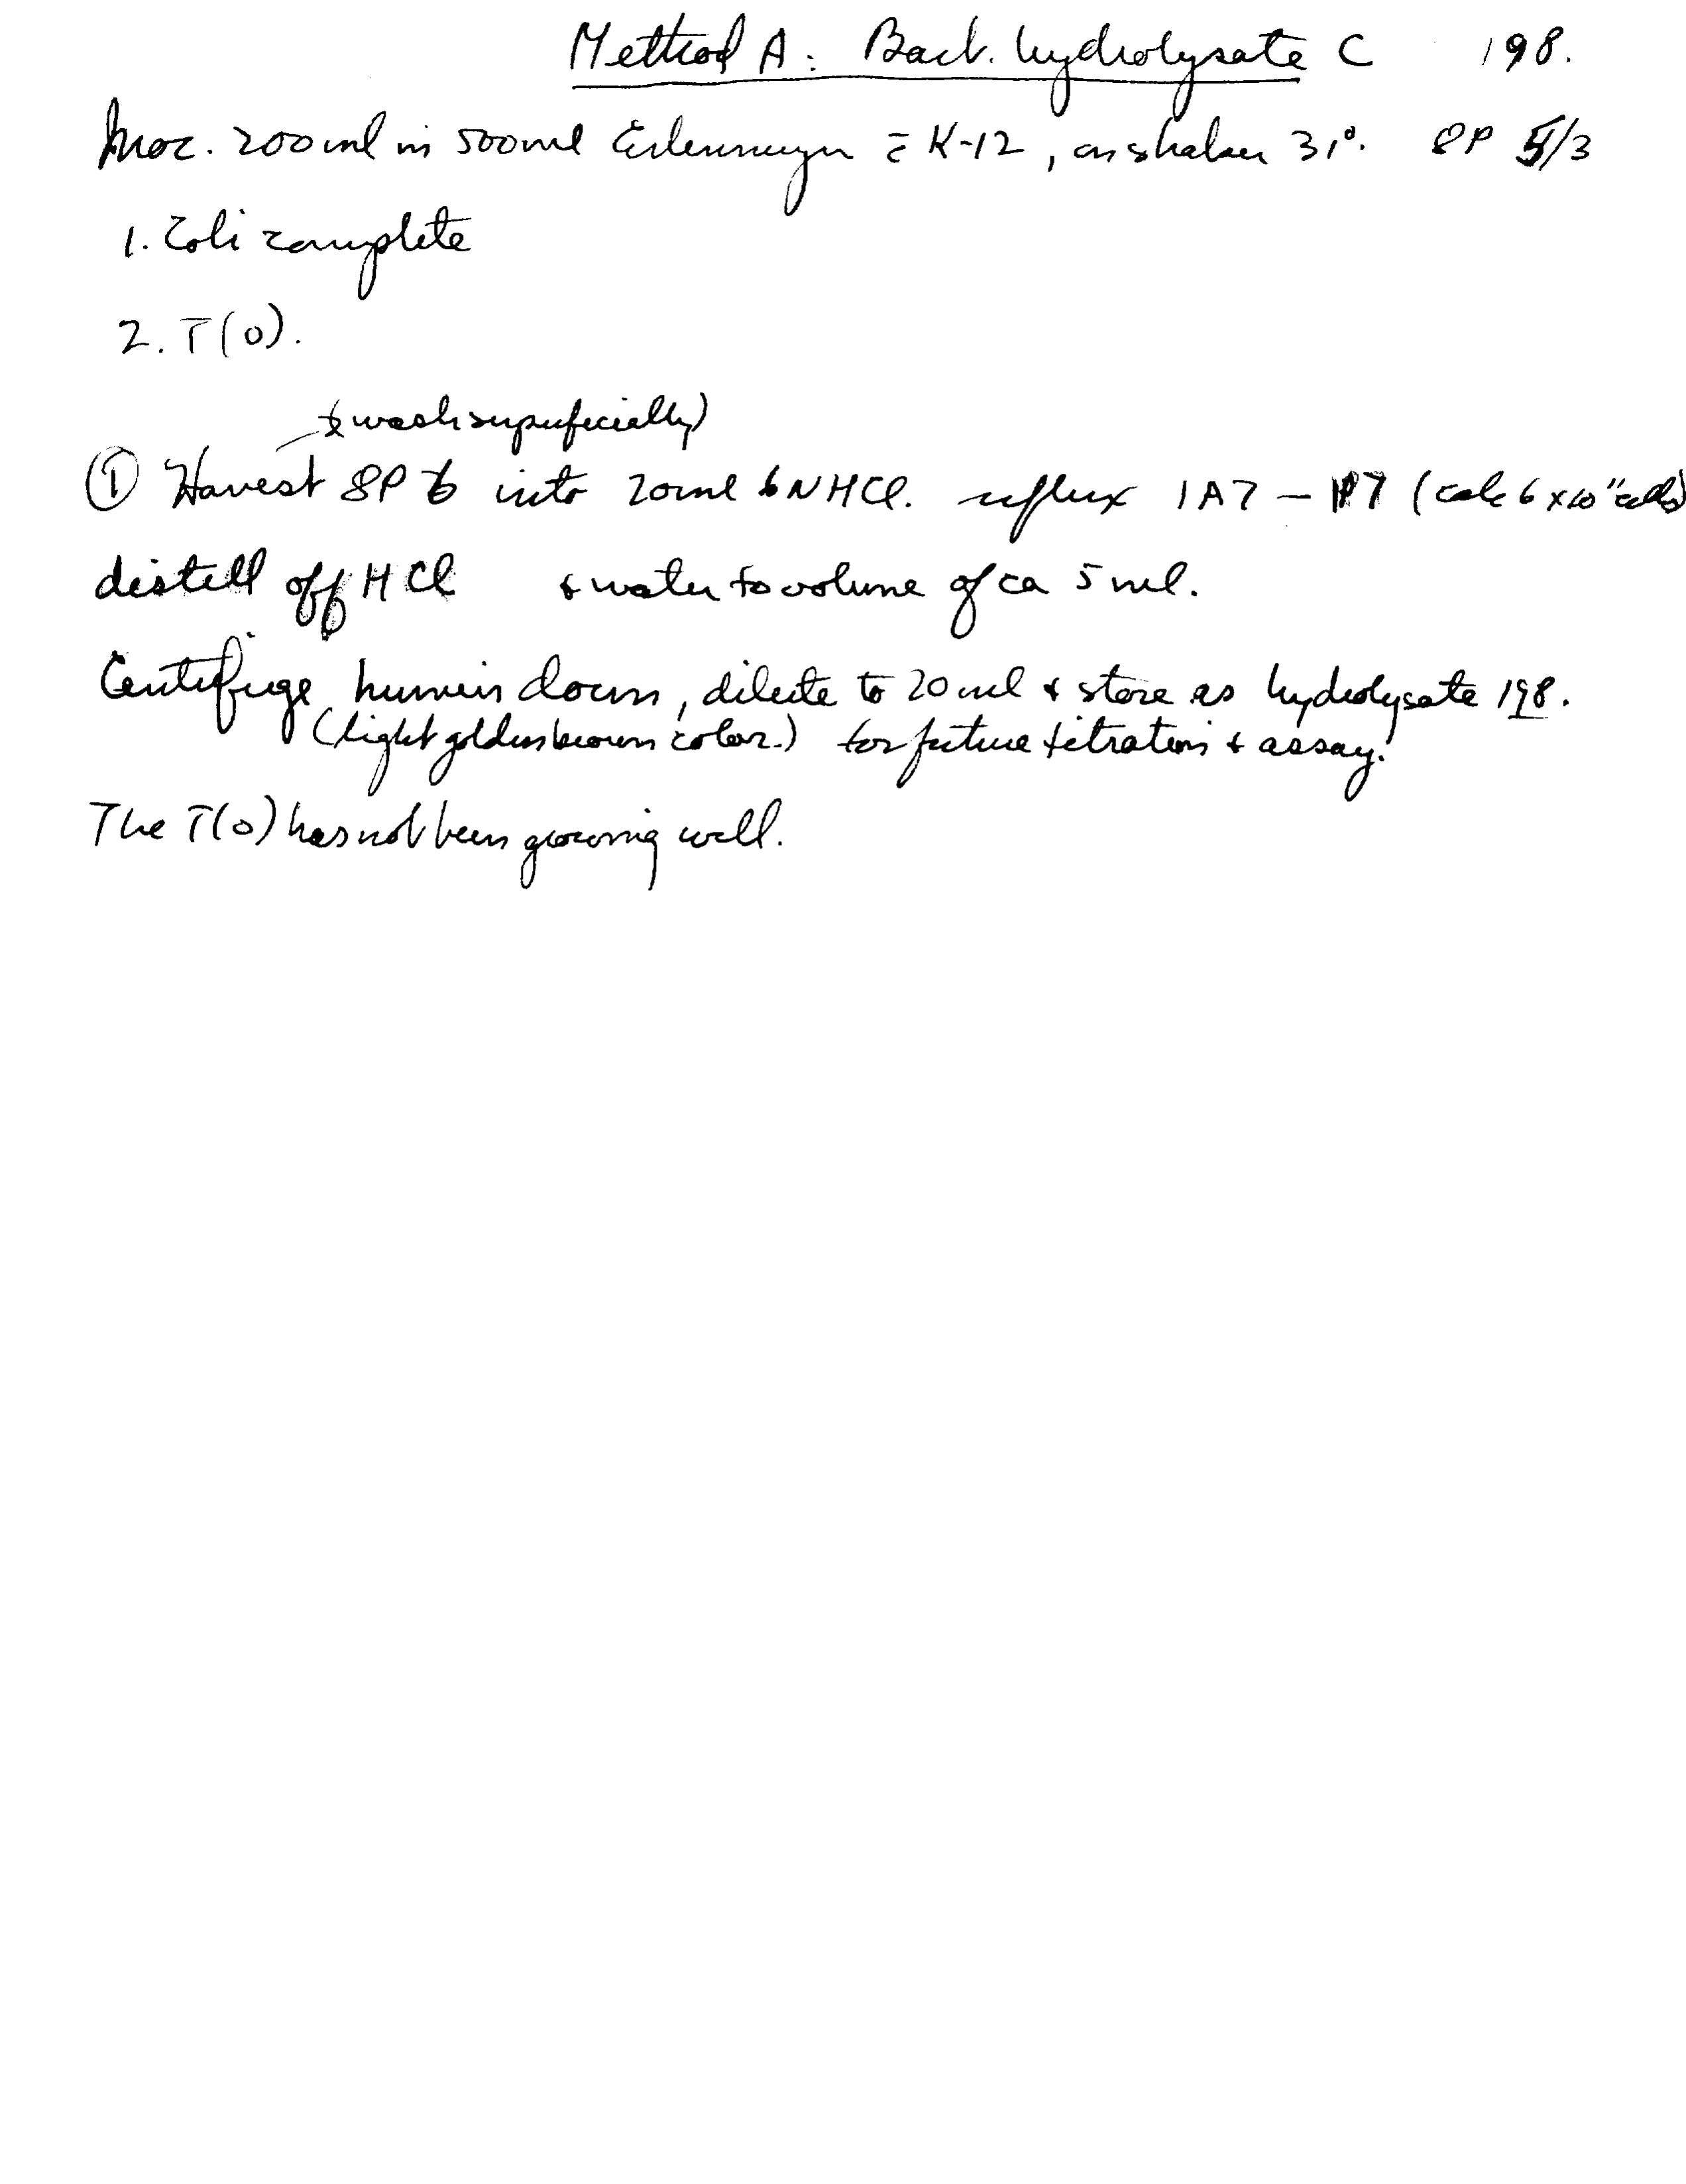 Method A: Bact. hydrolysate C 198.
Inoc. 200 ml in 500 ml Erlenmeyer c̄ K-12, on shaker 31°. 8P 5/3
1. Coli complete
2. T(0).
& wash superficially)
① Harvest 8P 6 into 20 ml 6N HCl. reflux 1A7 – 1P7 (calc 6 x 10¹¹ cells)
distill off HCl & water to volume of ca 5 ml.
Centrifuge humin down, dilute to 20 ml & store as hydrolysate 198.
(light golden brown color.) for future titration & assay.
The T(0) has not been growing well.